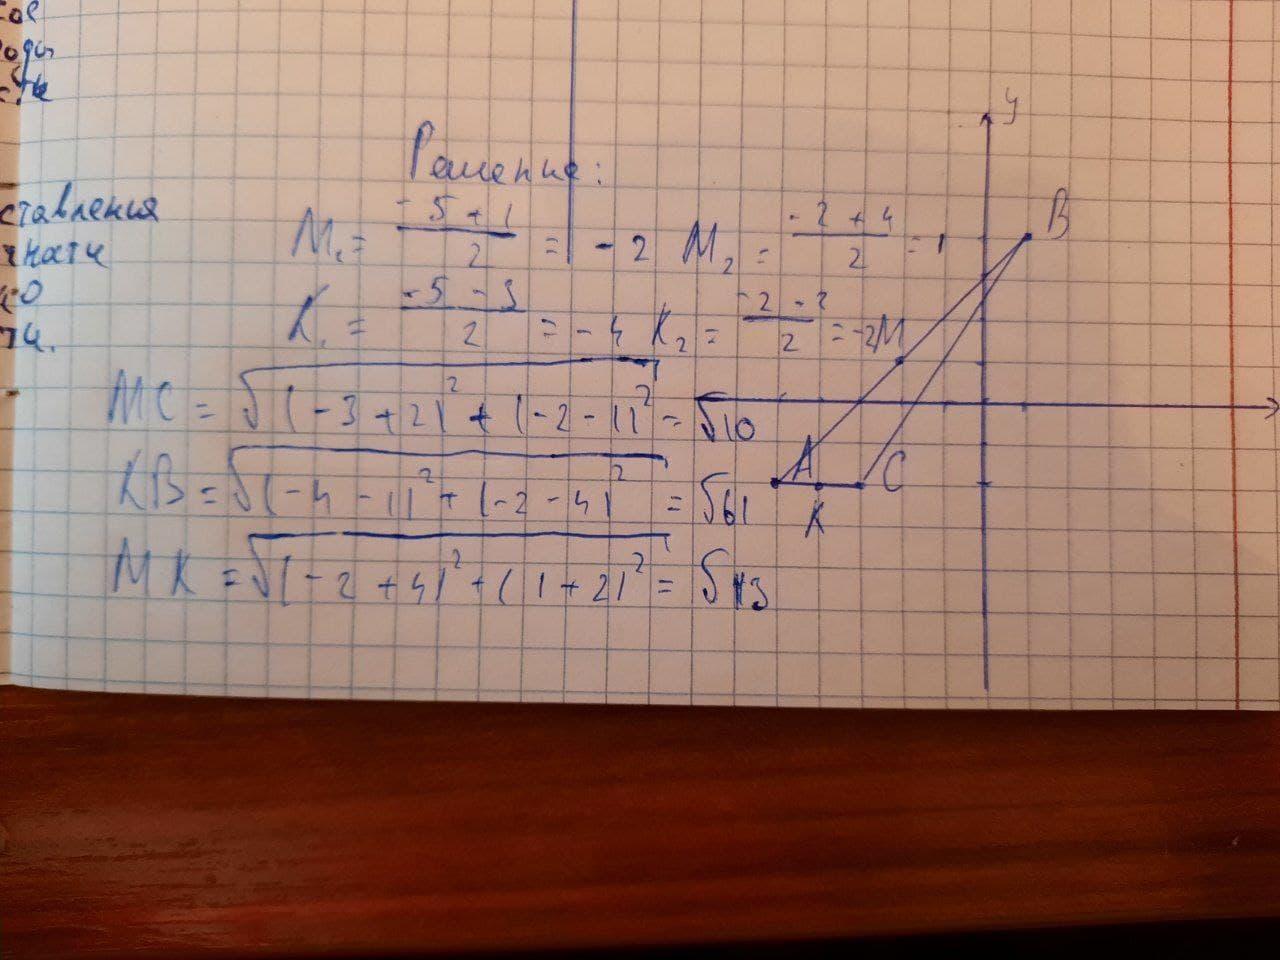 ставления
Решение:
M₁ = (-5 + 1)/2 = -2 M₂ = (-2 + 4)/2 = 1
K₁ = (-5 - 3)/2 = -4 K₂ = (-2 - 2)/2 = -2
MC = √((-3 + 2)² + (-2 - 1)²) = √10
KB = √((-4 - 1)² + (-2 - 4)²) = √61
MK = √((-2 + 4)² + (1 + 2)²) = √13
y
B
M
A
C
K